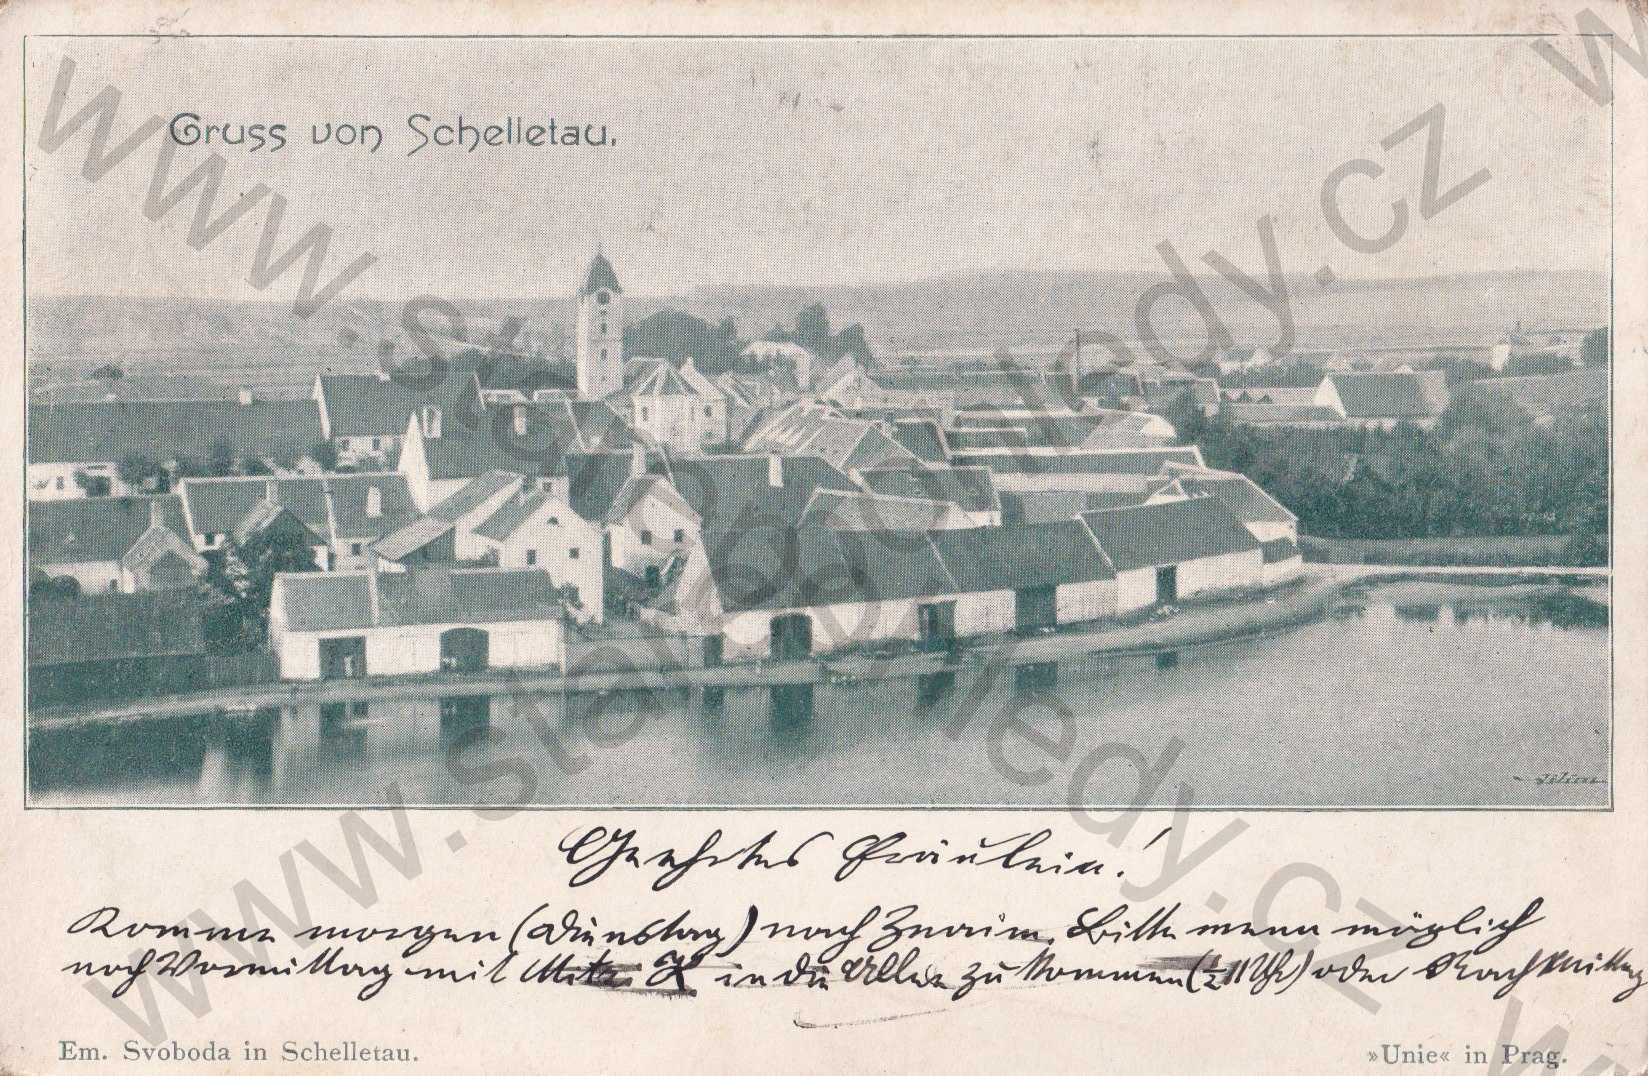 Gruss von Schelletau.
Geehrtes Fräulein!
Komme morgen (Dienstag) nach Znaim. Bitte wenn möglich
noch Vormittag mit Mitzi K in die Allee zu kommen (½11 Uhr) oder Nachmittag
Em. Svoboda in Schelletau.
»Unie« in Prag.
www.starepohledy.cz
www.starepohledy.cz